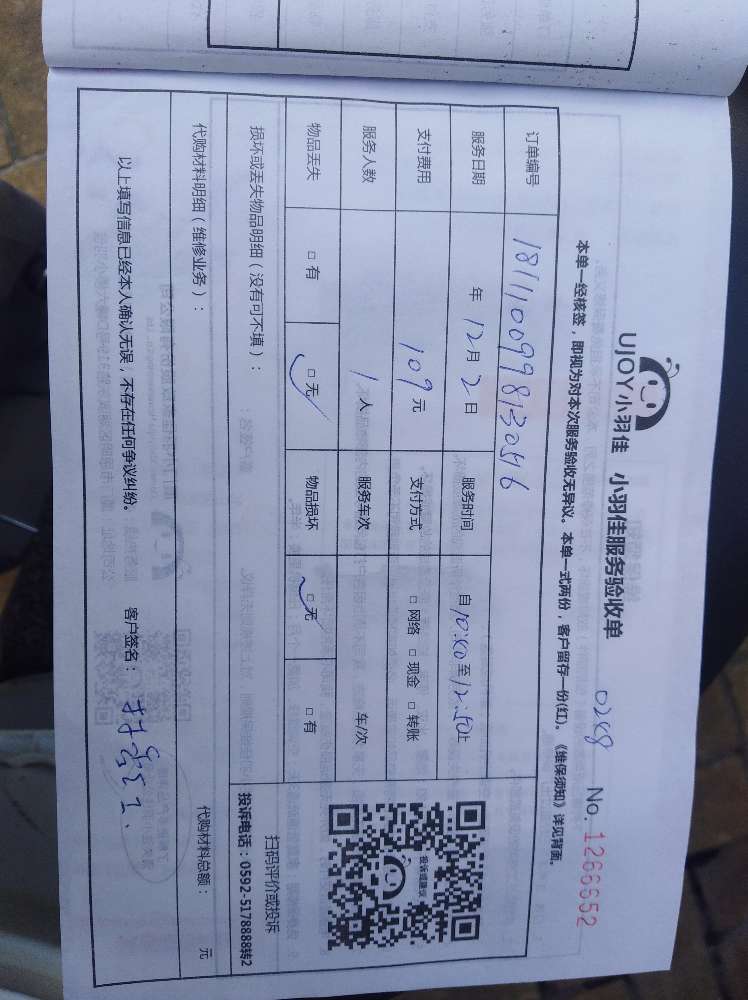 UJOY小羽佳 小羽佳服务验收单
0248 No. 1266652
本单一经核签，即视为对本次服务验收无异议。本单一式两份，客户留存一份(红)。《维保须知》详见背面。
订单编号 1811100998130546
服务日期 年 12月 2日 服务时间 自10:50至12:50止
支付费用 109元 支付方式 □ 网络 □ 现金 □ 转账
服务人数 1人 服务车次 车/次
物品丢失 □ 有 □ 无 物品损坏 □ 无 □ 有
投诉或建议
扫码评价或投诉
投诉电话：0592-5178888转2
损坏或丢失物品明细（没有可不填）：
代购材料明细（维修业务）： 代购材料总额： 元
以上填写信息已经本人确认无误，不存在任何争议纠纷。 客户签名：